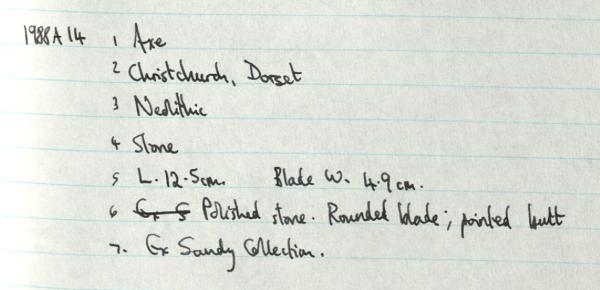 1988A14 1 Axe
2 Christchurch, Dorset
3 Neolithic
4 Stone
5 L. 12.5cm. Blade W. 4.9cm.
6 Ex S Polished stone. Rounded blade; pointed butt
7. Ex Sandy Collection.